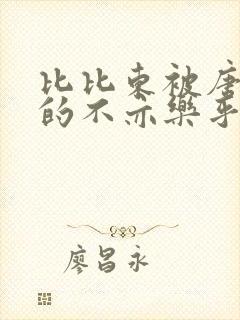 比比东被唐
的不亦乐乎
廖昌永